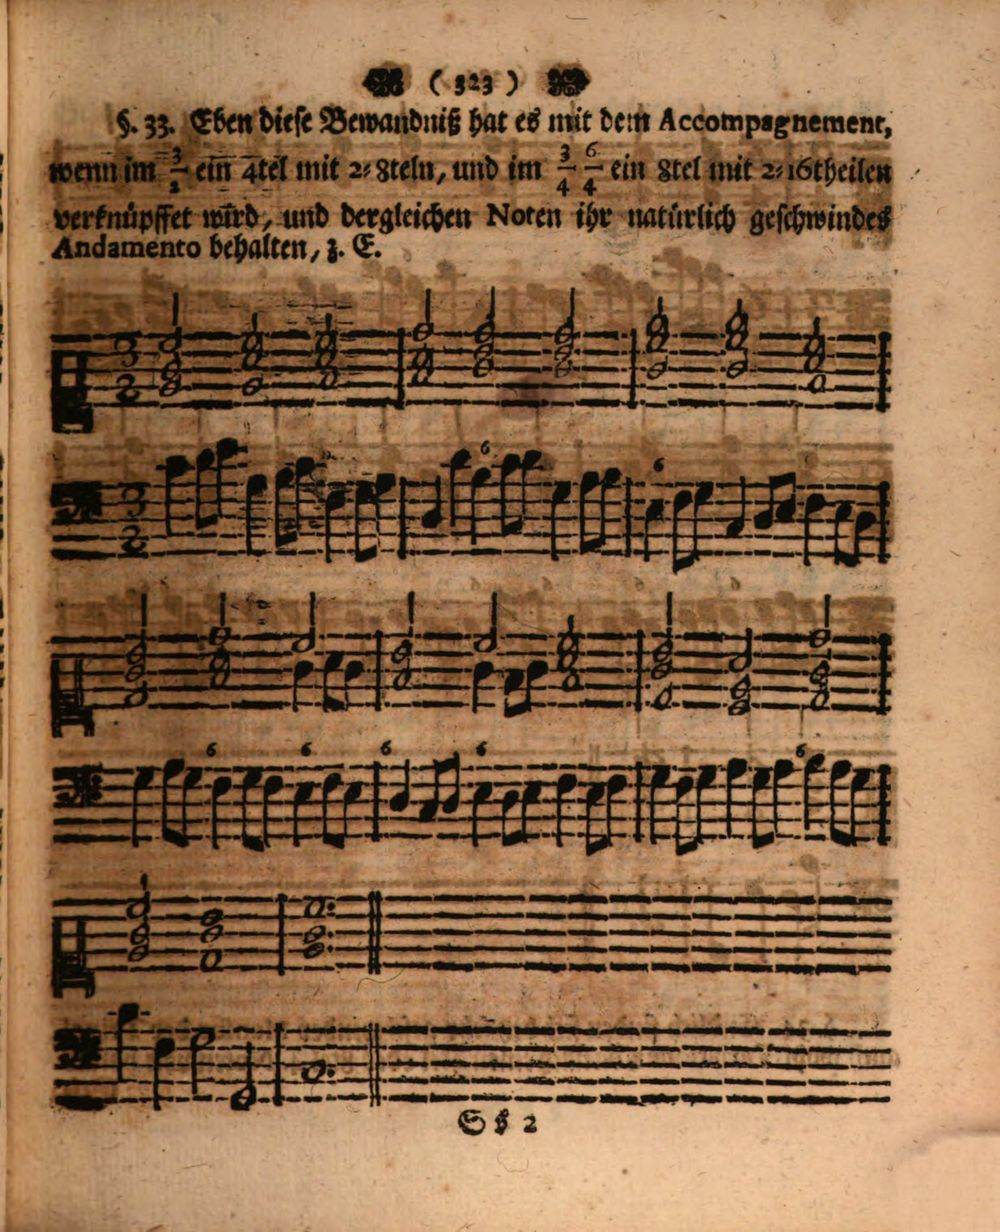 ( 323 )
§. 33. Eben diese Bewandniß hat es mit dem Accompagnement,
wenn im 3/2 ein 4tel mit 2=8teln, und im 3/4 6/4 ein 8tel mit 2=16theilen
verknüpffet wird, und dergleichen Noten ihr natürlich geschwindes
Andamento behalten, z. E.
3
2
6 6
3
2
6 6 6 6 6
Ss 2